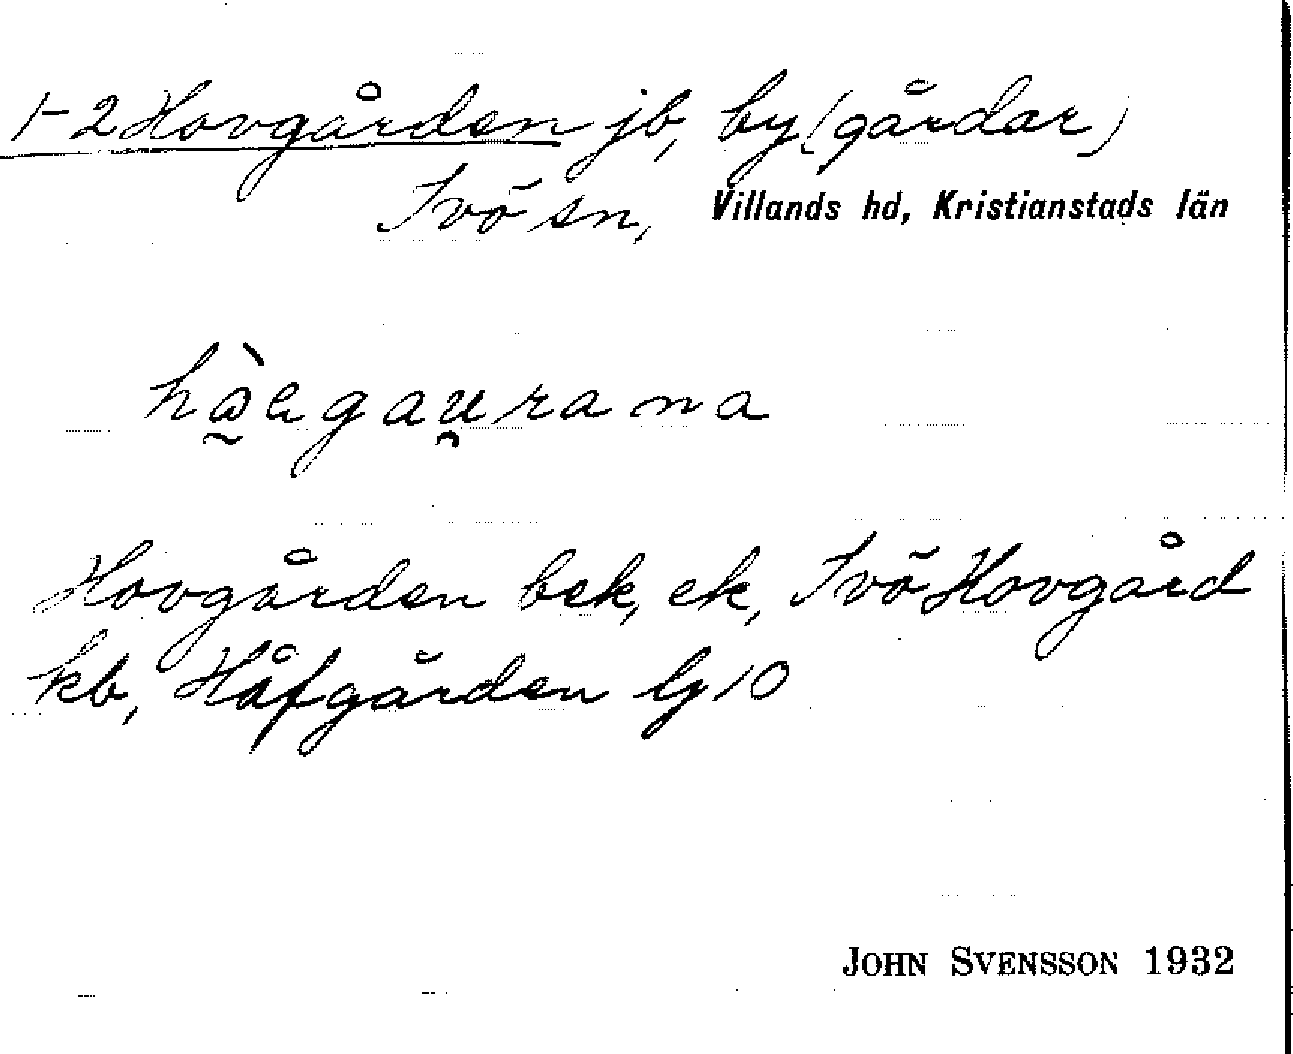 1-2 Hovgården jb, by (gårdar)
Ivö sn, Villands hd, Kristianstads län
Hovgården bek, ek, Ivö Hovgård
kb, Håfgården Gg 10
JOHN SVENSSON 1932